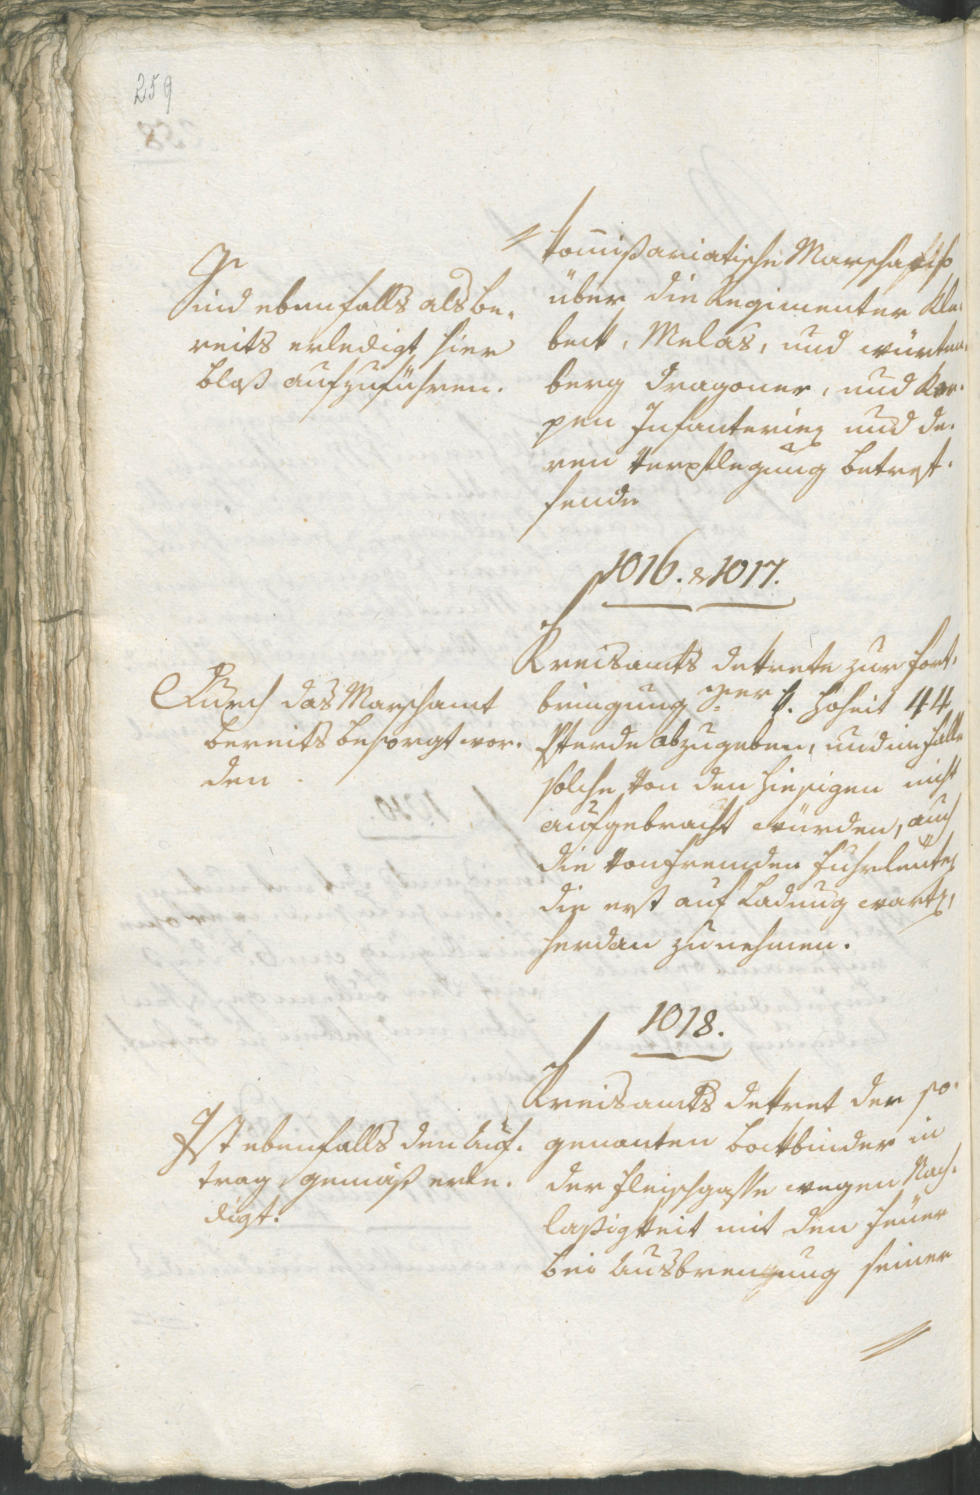 259
Sind ebenfalls als be-
reits erledigt hier
bloß aufzuführen.
komißariatische Marschaische
über die Regimenter Kle-
bek, Melas, und würtem-
berg Dragoner, und Ker-
pen Infanterie und de-
ren Verpflegung betref-
fende
1016. & 1017.
Durch das Marschamt
bereits besorgt wor-
den
Kreisamts dekrete zur fort-
bringung k. Hoheit 44
Pferde abzugeben, und im Falle
solche von den hiesigen nicht
aufgebracht würden, auch
die von fremden Fuhrleuten
die erst auf Ladung warten,
herdan zu nehmen.
1018.
Ist ebenfalls den Auf-
trag gemäß erle-
digt.
Kreisamts dekret der so-
genanten bockbinder in
der fleischgasse wegen Nach-
laßigkeit mit den Feuer
bei Ausbrennung seiner